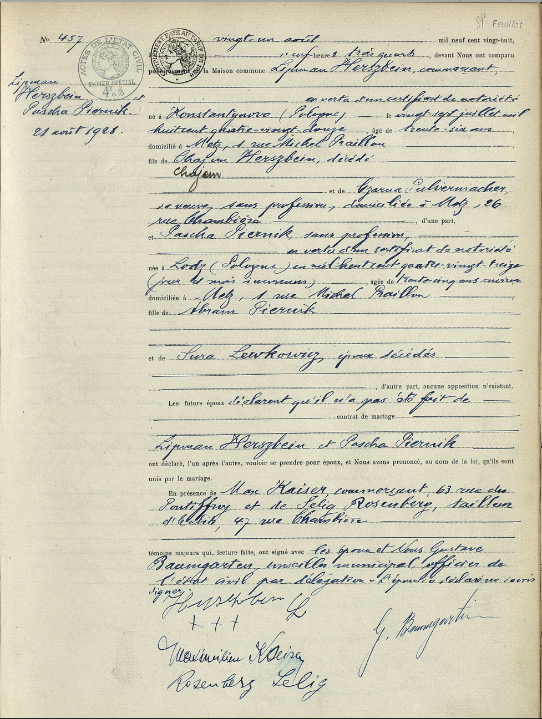 37 Feuillet
No 457 vingt-un août mil neuf cent vingt-huit,
neuf heures trois quarts, devant Nous ont comparu
publiquement en la Maison commune. Lipman Herszbein, commerçant,
ACTES DE L'ETAT CIVIL
PAPIER SPECIAL
Lipman
Herszbein et
Pascha Piernik.
21 août 1928.
en vertu d'un certificat de notoriété
né à Konstantynow (Pologne) le vingt-sept juillet mil
huit cent quatre-vingt-douze, âgé de trente-six ans
domicilié à Metz, 1 rue Michel Praillon
fils de Chajem Herszbein, décédé
Chajem
et de Czarna Pulvermacher,
sa veuve, sans profession, domiciliée à Metz, 26
rue Chambière, d'une part,
et Pascha Piernik, sans profession,
en vertu d'un certificat de notoriété
née à Lodz (Pologne) en mil huit cent quatre-vingt-treize
(jour et mois inconnus), agée de trente-cinq ans environ
domiciliée à Metz, 1 rue Michel Praillon
fille de Abram Piernik
et de Sura Lewkowicz, époux décédés
d'autre part, aucune opposition n'existant.
Les futurs époux déclarent qu'il n'a pas été fait de
contrat de mariage
Lipman Herszbein et Pascha Piernik
ont déclaré, l'un après l'autre, vouloir se prendre pour époux, et Nous avons prononcé, au nom de la loi, qu'ils sont
unis par le mariage.
En présence de Max Kaiser, commerçant, 63 rue du
Pontiffroy et de Selig Rosenberg, tailleur
d'habits, 47 rue Chambière
témoins majeurs qui, lecture faite, ont signé avec les époux et Nous Gustave
Baumgarten, conseiller municipal, officier de
l'état civil par délégation. L'épouse a déclaré ne savoir
signer.
+ + +
G. Baumgarten
Maximilien Kaiser
Rosenberg Selig